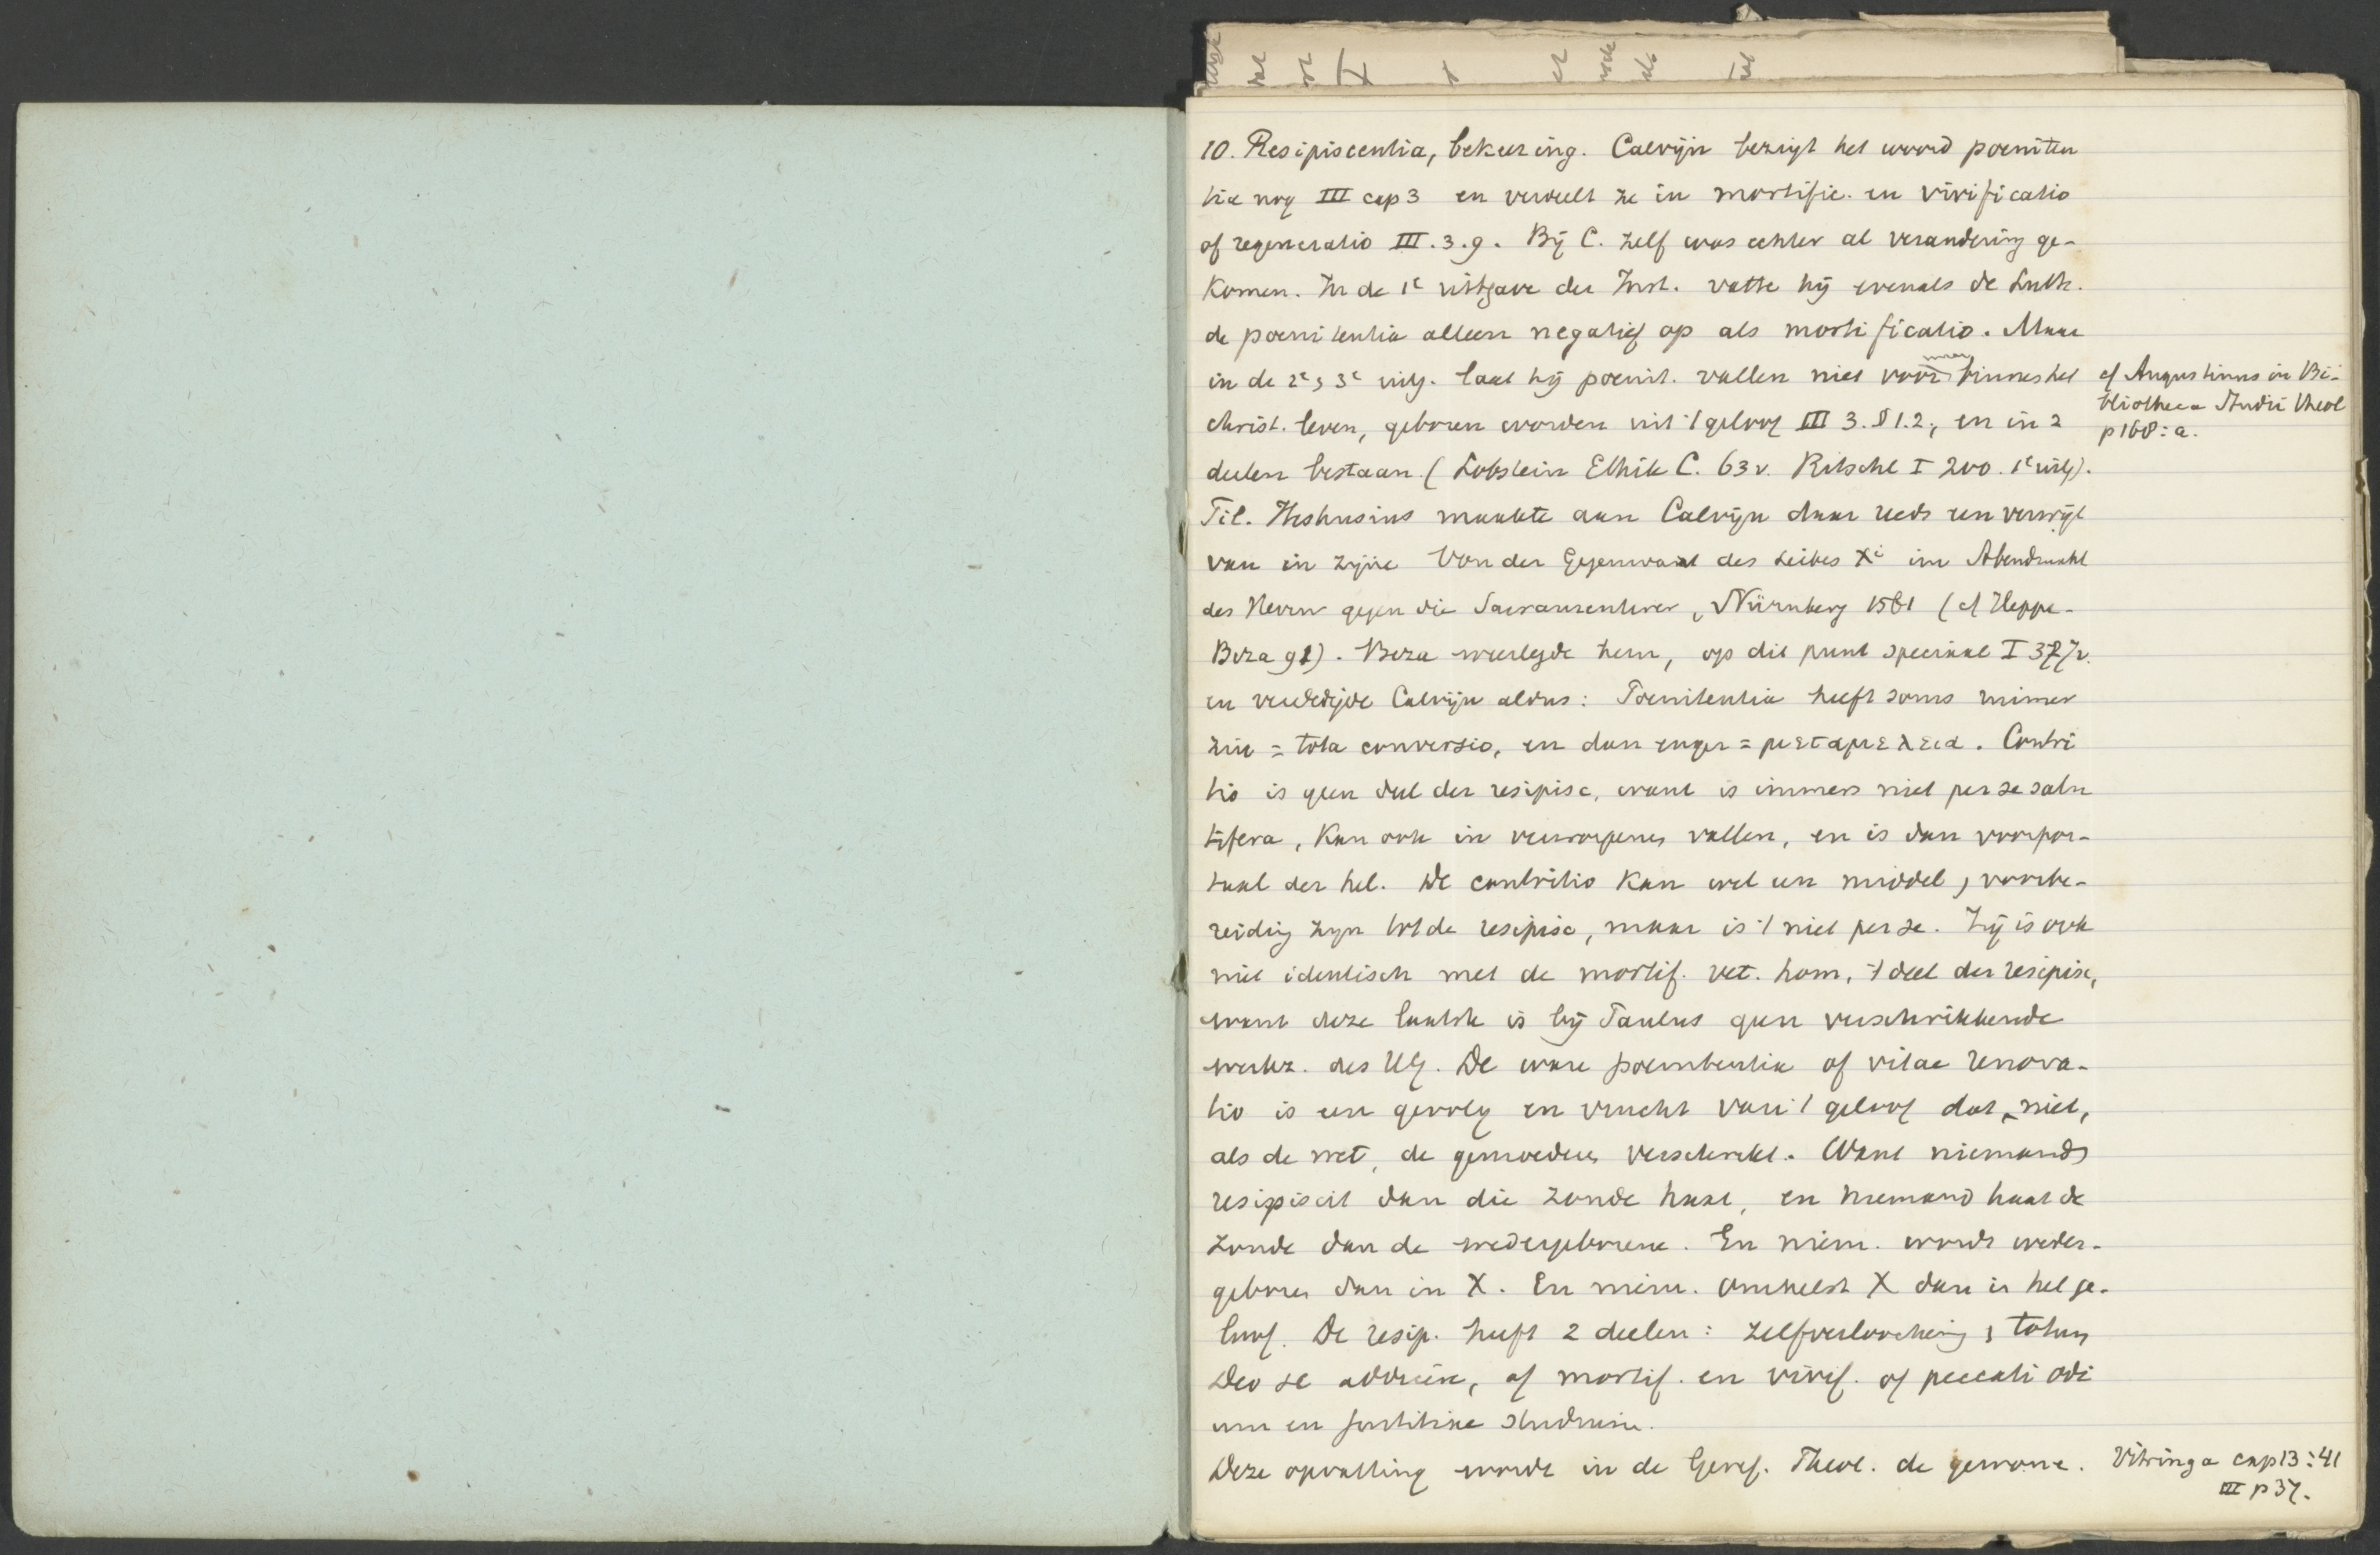 10. Resipiscentia, bekeering. Calvijn bezigt het woord poeniten
tia nog III cap 3 en verdeelt ze in mortific. en vivificatio
of regeneratio III.3.9. Bij C. zelf was echter al verandering ge-
komen. In de 1e uitgave der Inst. vatte hij evenals de Luth.
de poenitentia alleen negatief op als mortificatio. Maar
in de 2e, 3e uitg. laat hij poenit. vallen niet voor maar binnen het
christ. leven, geboren worden uit 't geloof III 3. § 1.2, en in 2
deelen bestaan (Lobstein Ethik C. 63v. Ritschl I 200. 1e uitg).
Til. Heshusius maakte aan Calvijn daar reeds een verwijt
van in zijne Von der Gegenwart des Leibes Xi im Abendmahl
des Herrn gegen die Sacramentirer, Nürnberg 1561 (cf Heppe-
Beza 91). Beza weerlegde hem, op dit punt speciaal I 327v.
en verdedigde Calvijn aldus: Poenitentia heeft soms ruimer
zin = tota conversio, en dan enger = μεταμελεια. Contri
tio is geen deel der resipisc, want is immers niet per se salu
tifera, kan ook in verworpenen vallen, en is dan voorpor-
taal der hel. De contritio kan wel een middel, voorbe-
reiding zijn tot de resipisc, maar is 't niet per se. Zij is ook
niet identisch met de mortif. vet. hom, 't deel der resipisc,
want deze laatste is bij Paulus geen verschrikkende
werkz. des HG. De ware poenitentia of vitae renova-
tio is een gevolg en vrucht van 't geloof dat niet,
als de wet, de gemoederen verschrikt. Want niemand
resipiscit dan die zonde haat, en niemand haat de
zonde dan de wedergeborene. En niem. wordt weder-
geboren dan in X. En niem. omhelst X dan in het ge-
loof. De resip. heeft 2 deelen: zelfverloochening, totum
Deo se addicere, of mortif. en vivif. of peccati odi
um en justitiae studium.
Deze opvatting wordt in de Geref. Theol. de gewone.
cf Augustinus in Bi-
bliotheca Studii Theol
p 168: a.
Vitringa cap 13:41
III p 37.